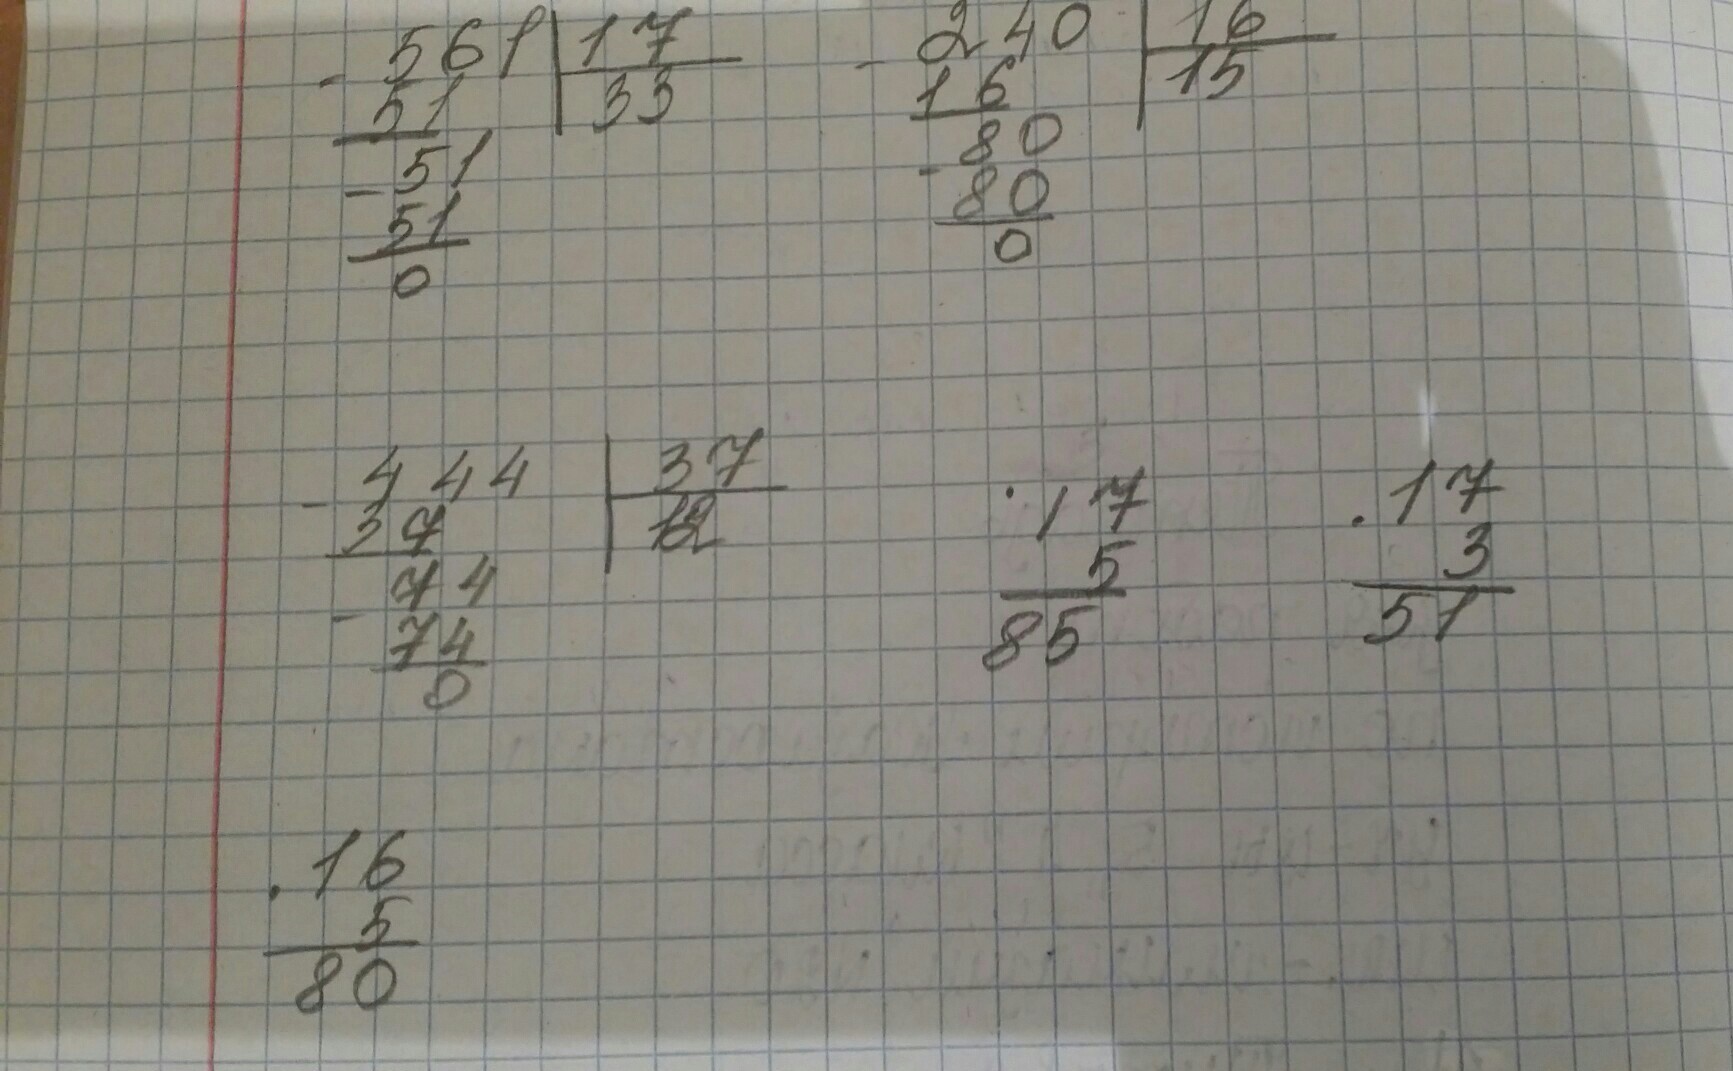 - 561 | 17
51 | 33
- 51
51
0
- 240 | 16
16 | 15
- 80
80
0
- 444 | 37
37 | 12
- 74
74
0
· 17
5
85
· 17
3
51
· 16
5
80